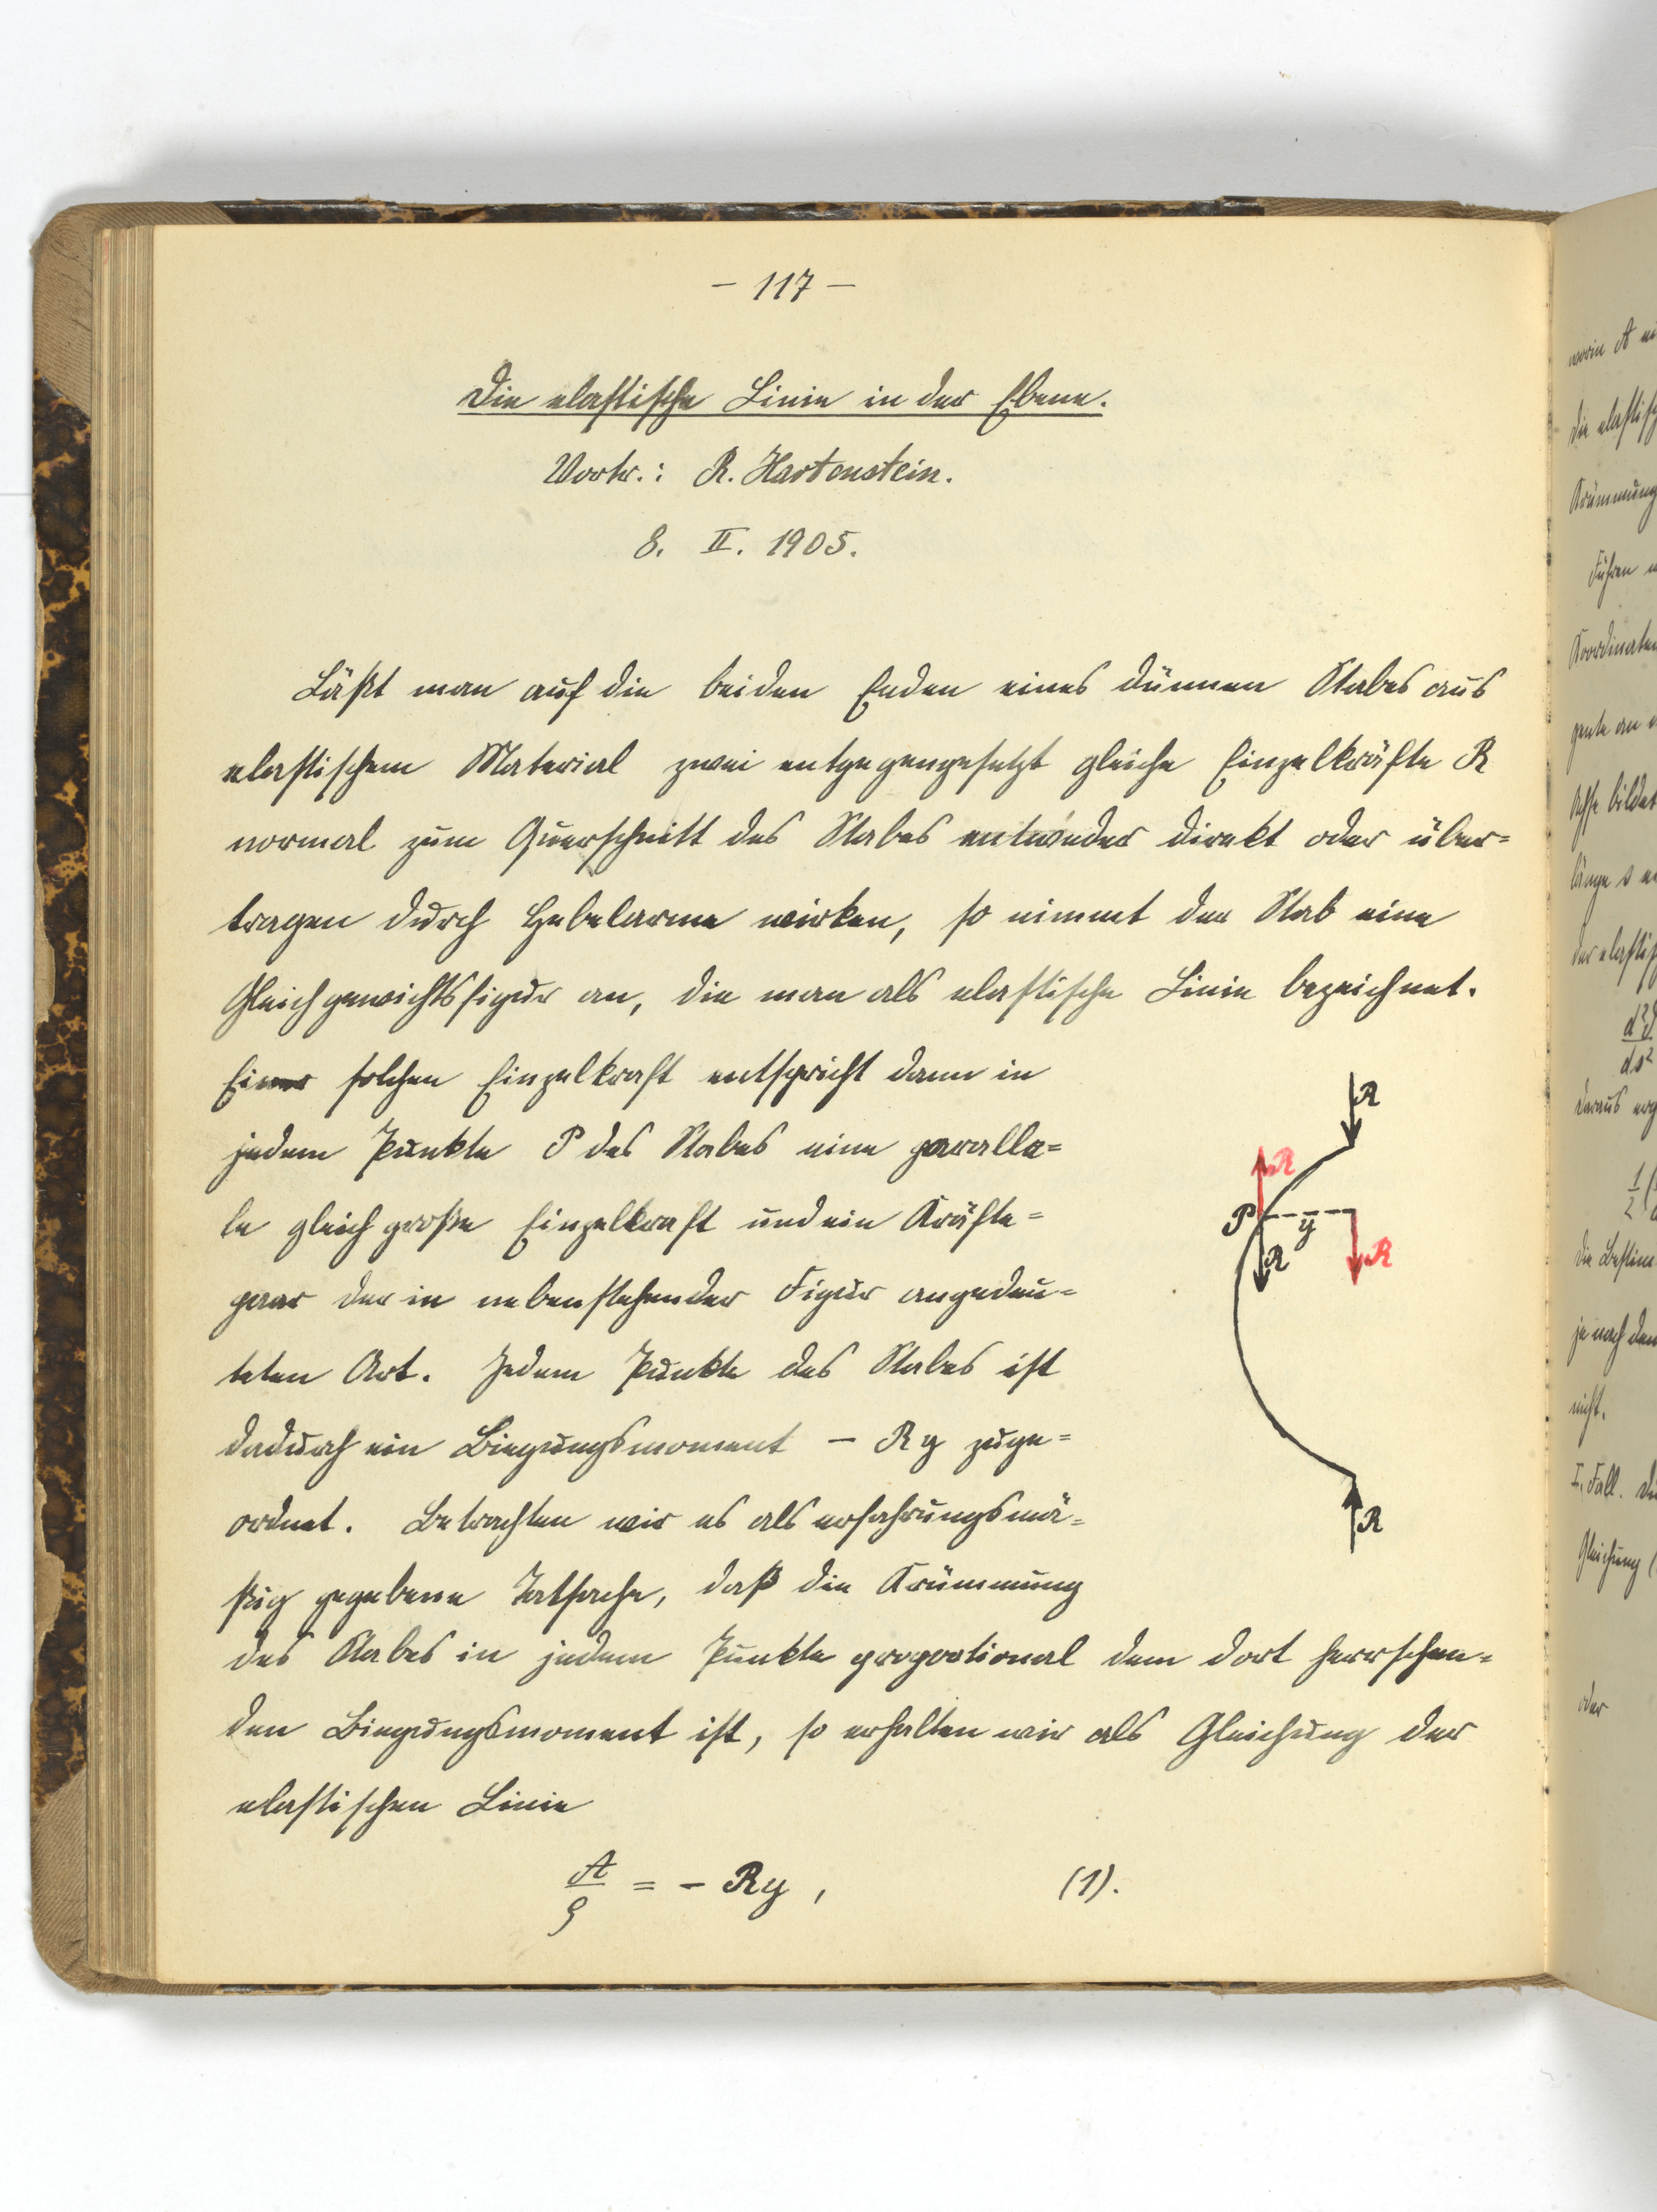 — 117 —
Die elastische Linie in der Ebene.
Vortr.: R. Hartenstein.
8. II. 1905.
Läßt man auf die beiden Enden eines dünnen Stabes aus
elastischem Material zwei entgegengesetzt gleiche Einzelkräfte R
normal zum Querschnitt des Stabes entweder direkt oder über=
tragen durch Hebelarme wirken, so nimmt der Stab eine
Gleichgewichtsfigur an, die man als elastische Linie bezeichnet.
Einer solchen Einzelkraft entspricht dann in
jedem Punkte P des Stabes eine paralle=
le gleich große Einzelkraft und ein Kräfte=
paar der in nebenstehender Figur angedeu=
teten Art. Jedem Punkte des Stabes ist
dadurch ein Biegungsmoment – Ry zuge=
ordnet. Betrachten wir es als erfahrungsmä=
ßig gegebene Tatsache, daß die Krümmung
des Stabes in jedem Punkte proportional dem dort herrschen=
den Biegungsmoment ist, so erhalten wir als Gleichung der
elastischen Linie
A/ρ = – Ry , (1).
R
R
P y
R R
R
worin A
die elastisch
Krümmung
Führen
Koordinaten
Achse bildet
länge s
der elastis
d²ϑ
ds²
daraus erg
1/2 (
die Bestim
je nach dem
nicht.
I. Fall. Di
Gleichung (
oder